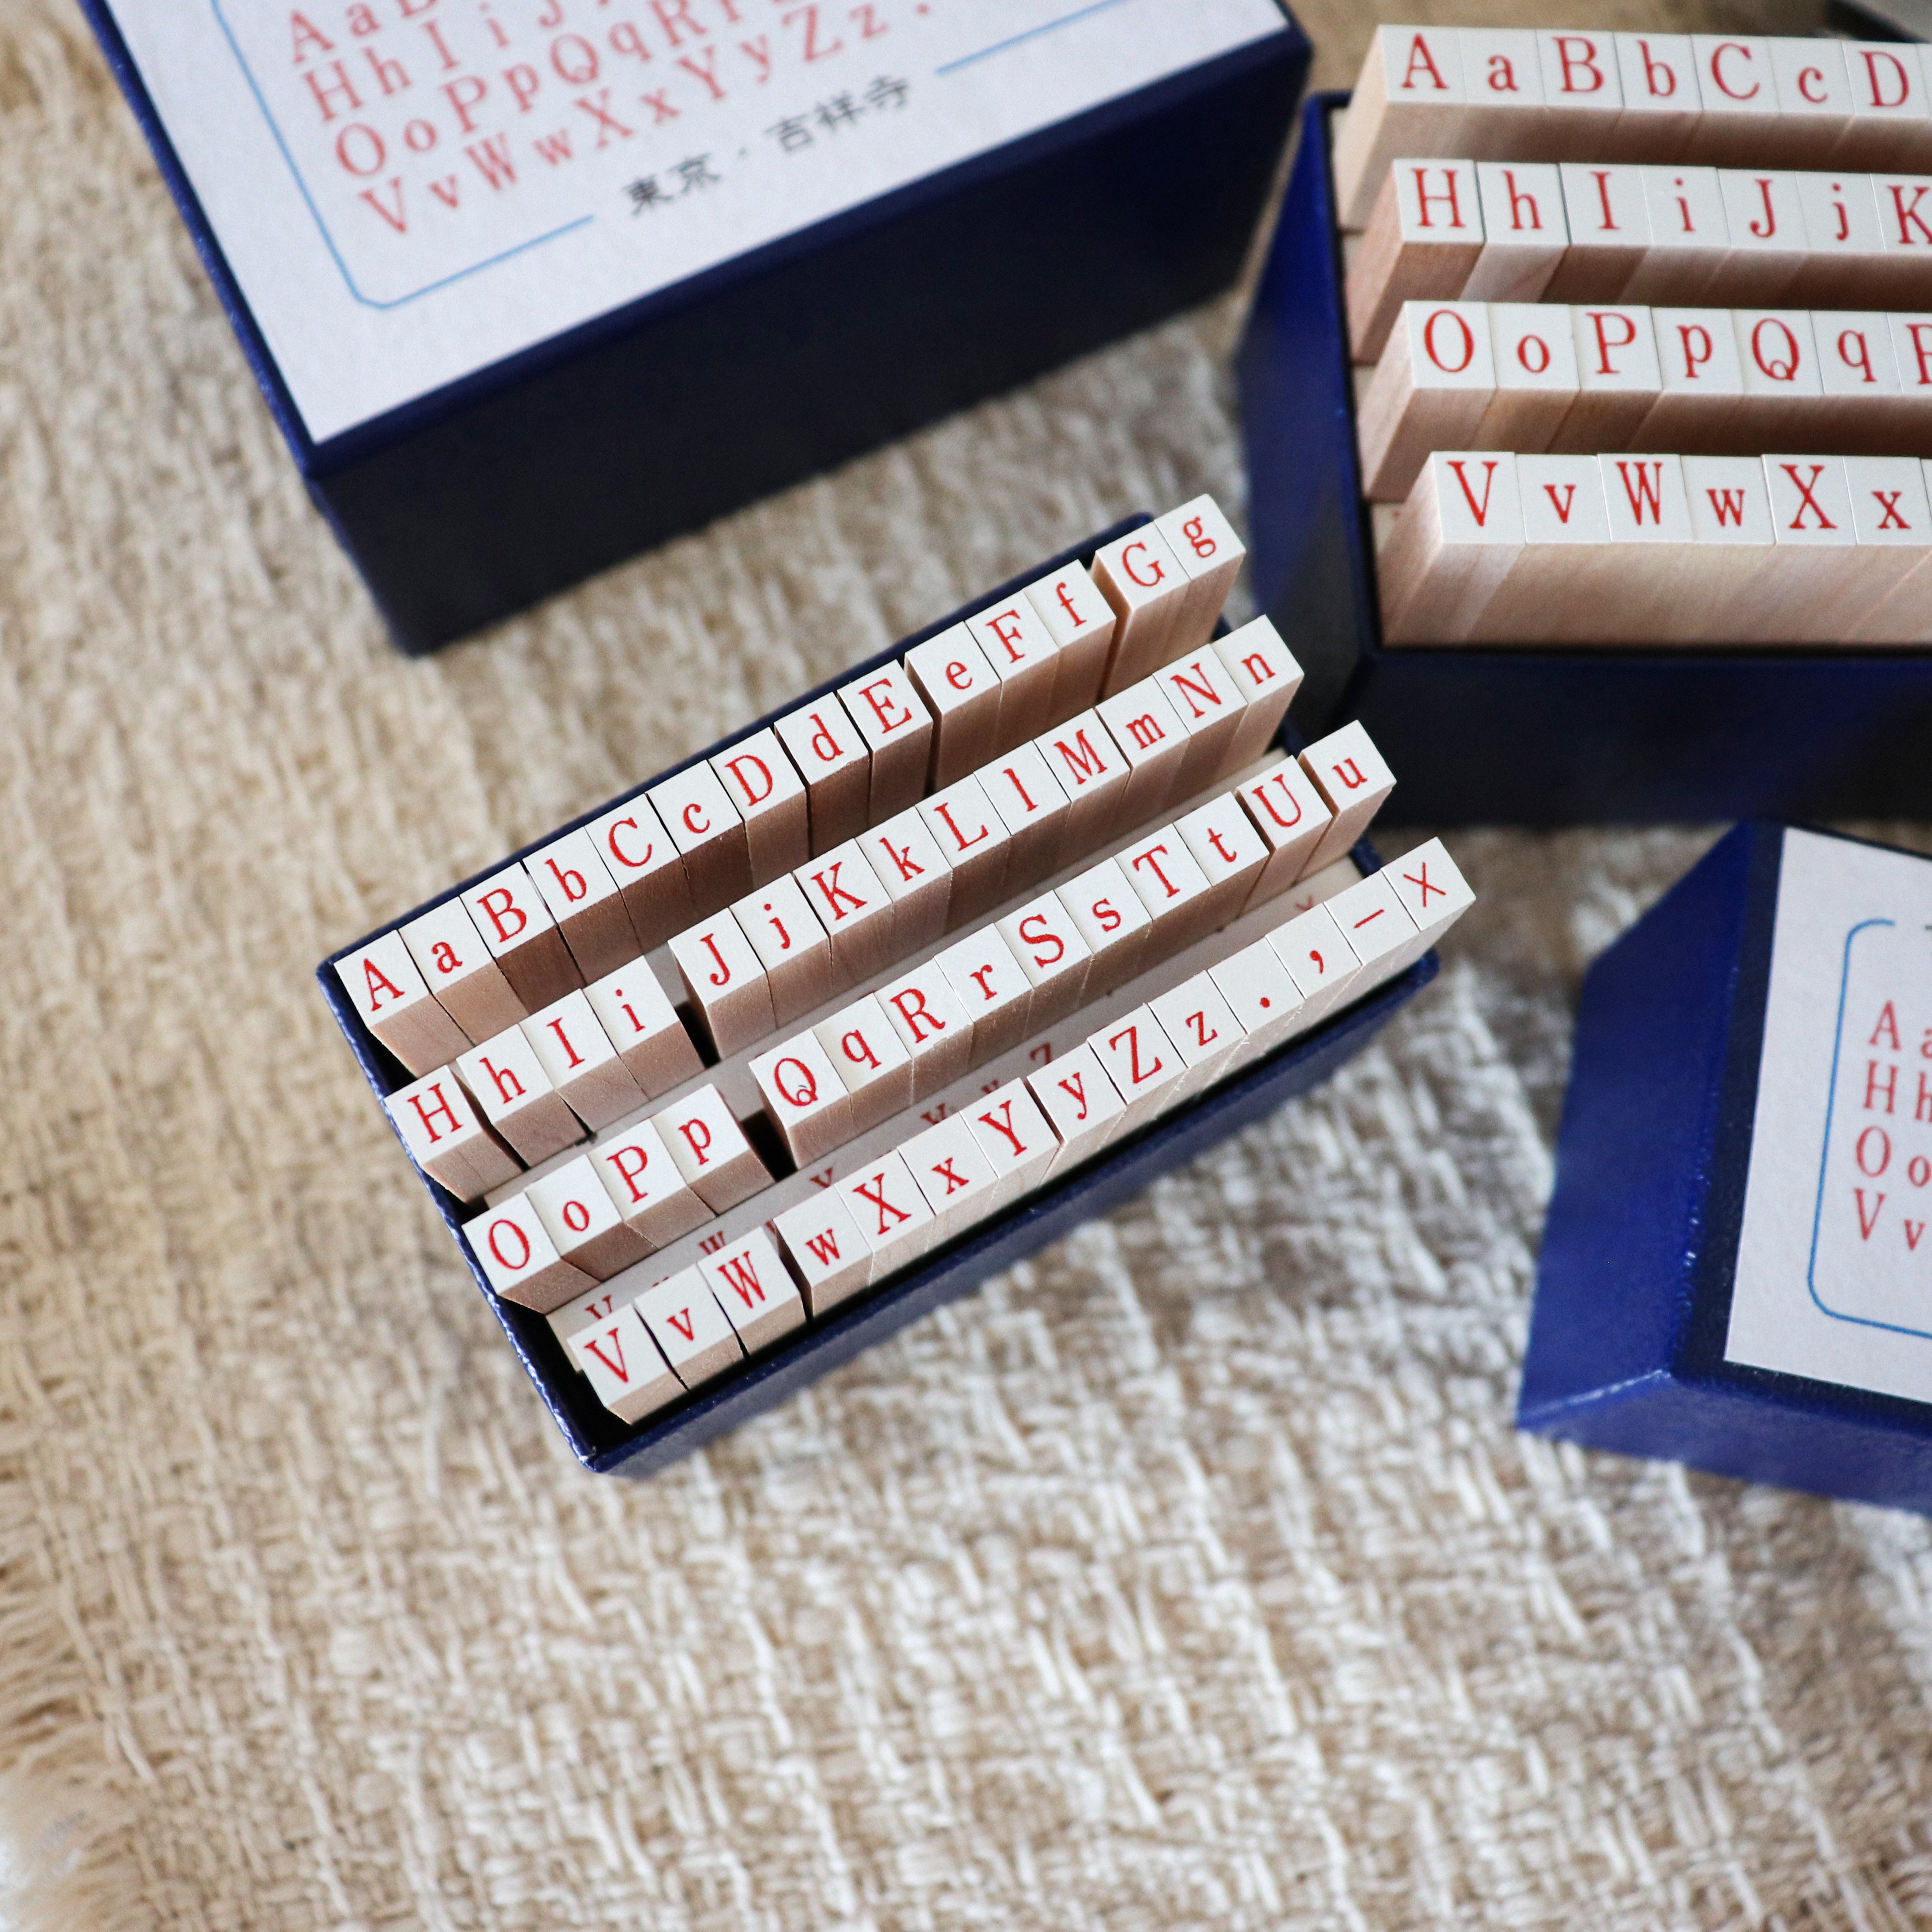 H h I i J
O o P p Q q R
V v W w X x Y y Z z .
東京・吉祥寺
A a B b C c D
H h I i J j K
O o P p Q q
V v W w X x
A a B b C c D d E e F f G g
H h I i J j K k L l M m N n
O o P p Q q R r S s T t U u
V v W w X x Y y Z z . , – ×
A a
H h
O o
V v